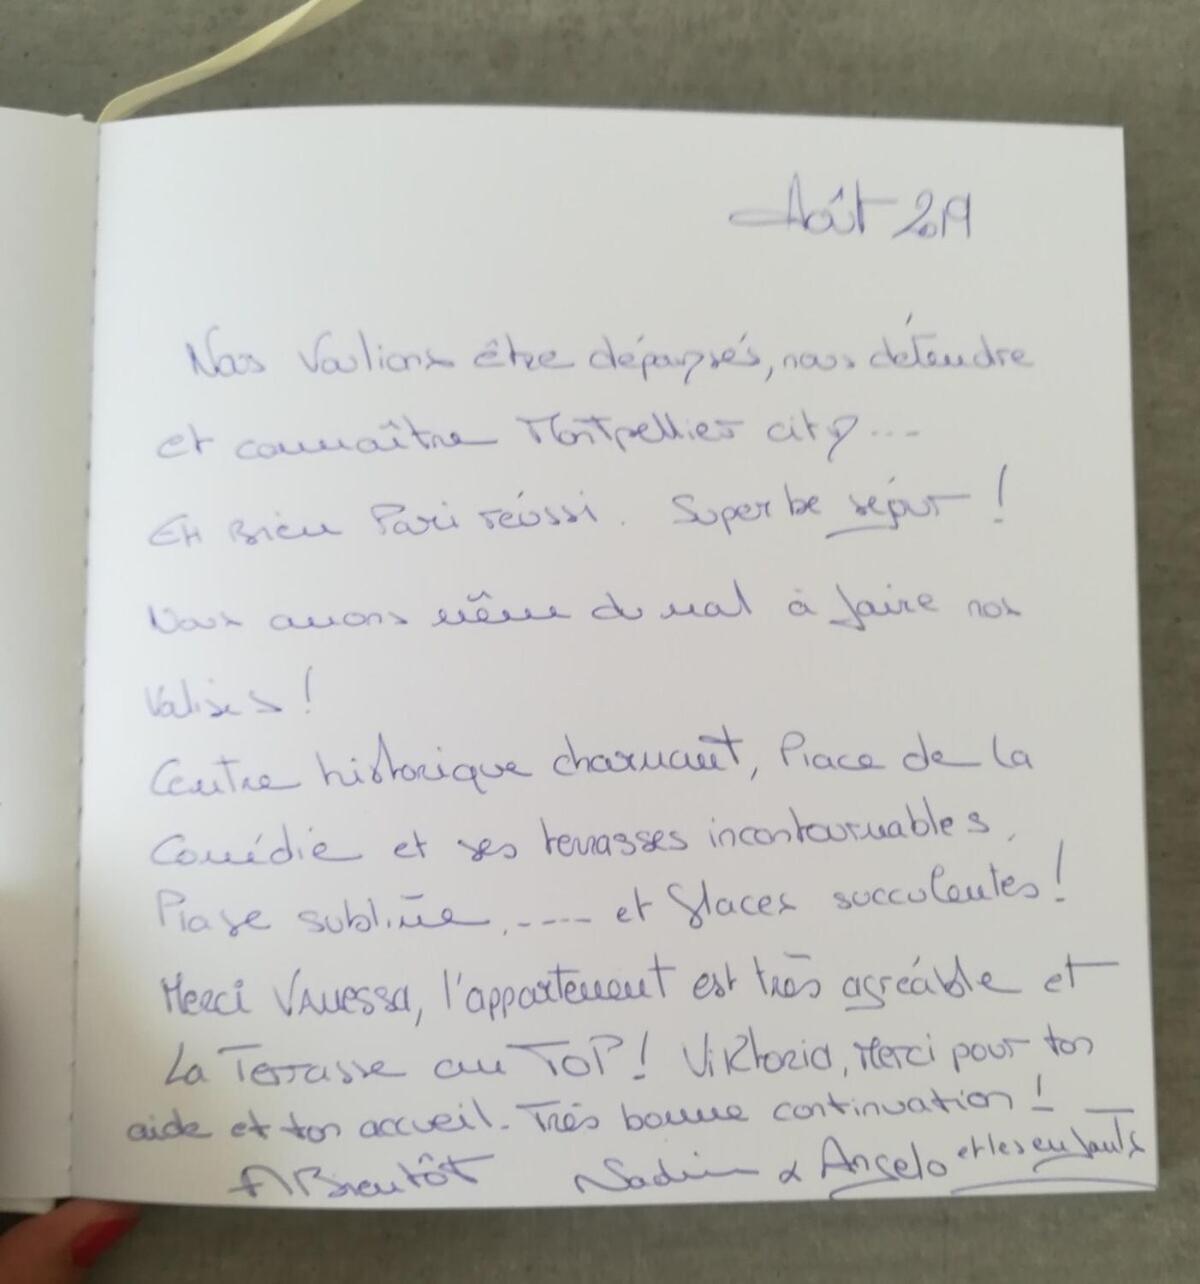 Août 2019
Nous Voulions être dépaysés, nous détendre
et connaître Montpellier city...
Eh Bien Pari réussi. Superbe séjour !
Nous avons même du mal à faire nos
Valises !
Centre historique charmant, Place de la
Comédie et ses terrasses incontournables.
Plage sublime, .... et glaces succulentes !
Merci Vanessa, l'appartement est très agréable et
La Terrasse au TOP ! Viktoria, Merci pour ton
aide et ton accueil. Très bonne continuation !
A Bientôt Nadine & Angelo et les enfants